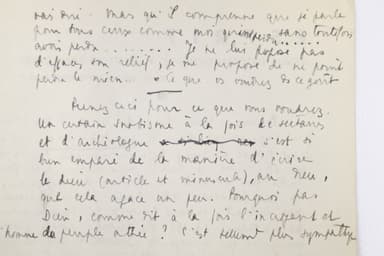 mais qu'il comprenne que je parle
pour tous ceux comme moi perdu sans toutefois
avoir perdu ........ Je ne lui propose pas
d'effacer son relief, je me propose de ne point
perdre le mien. Ce que os de goût
Prenez ceci pour ce que vous voudrez.
Un certain snobisme à la fois de sectaires
et d'archéologue s'est si
bien emparé de la manière d'écrire
le dieu (article et minuscule), au Dieu,
que cela agace un peu. Pourquoi pas
Dieu, comme dit à la fois l'innocent et
l'homme du peuple athée ? C'est tellement plus sympathique